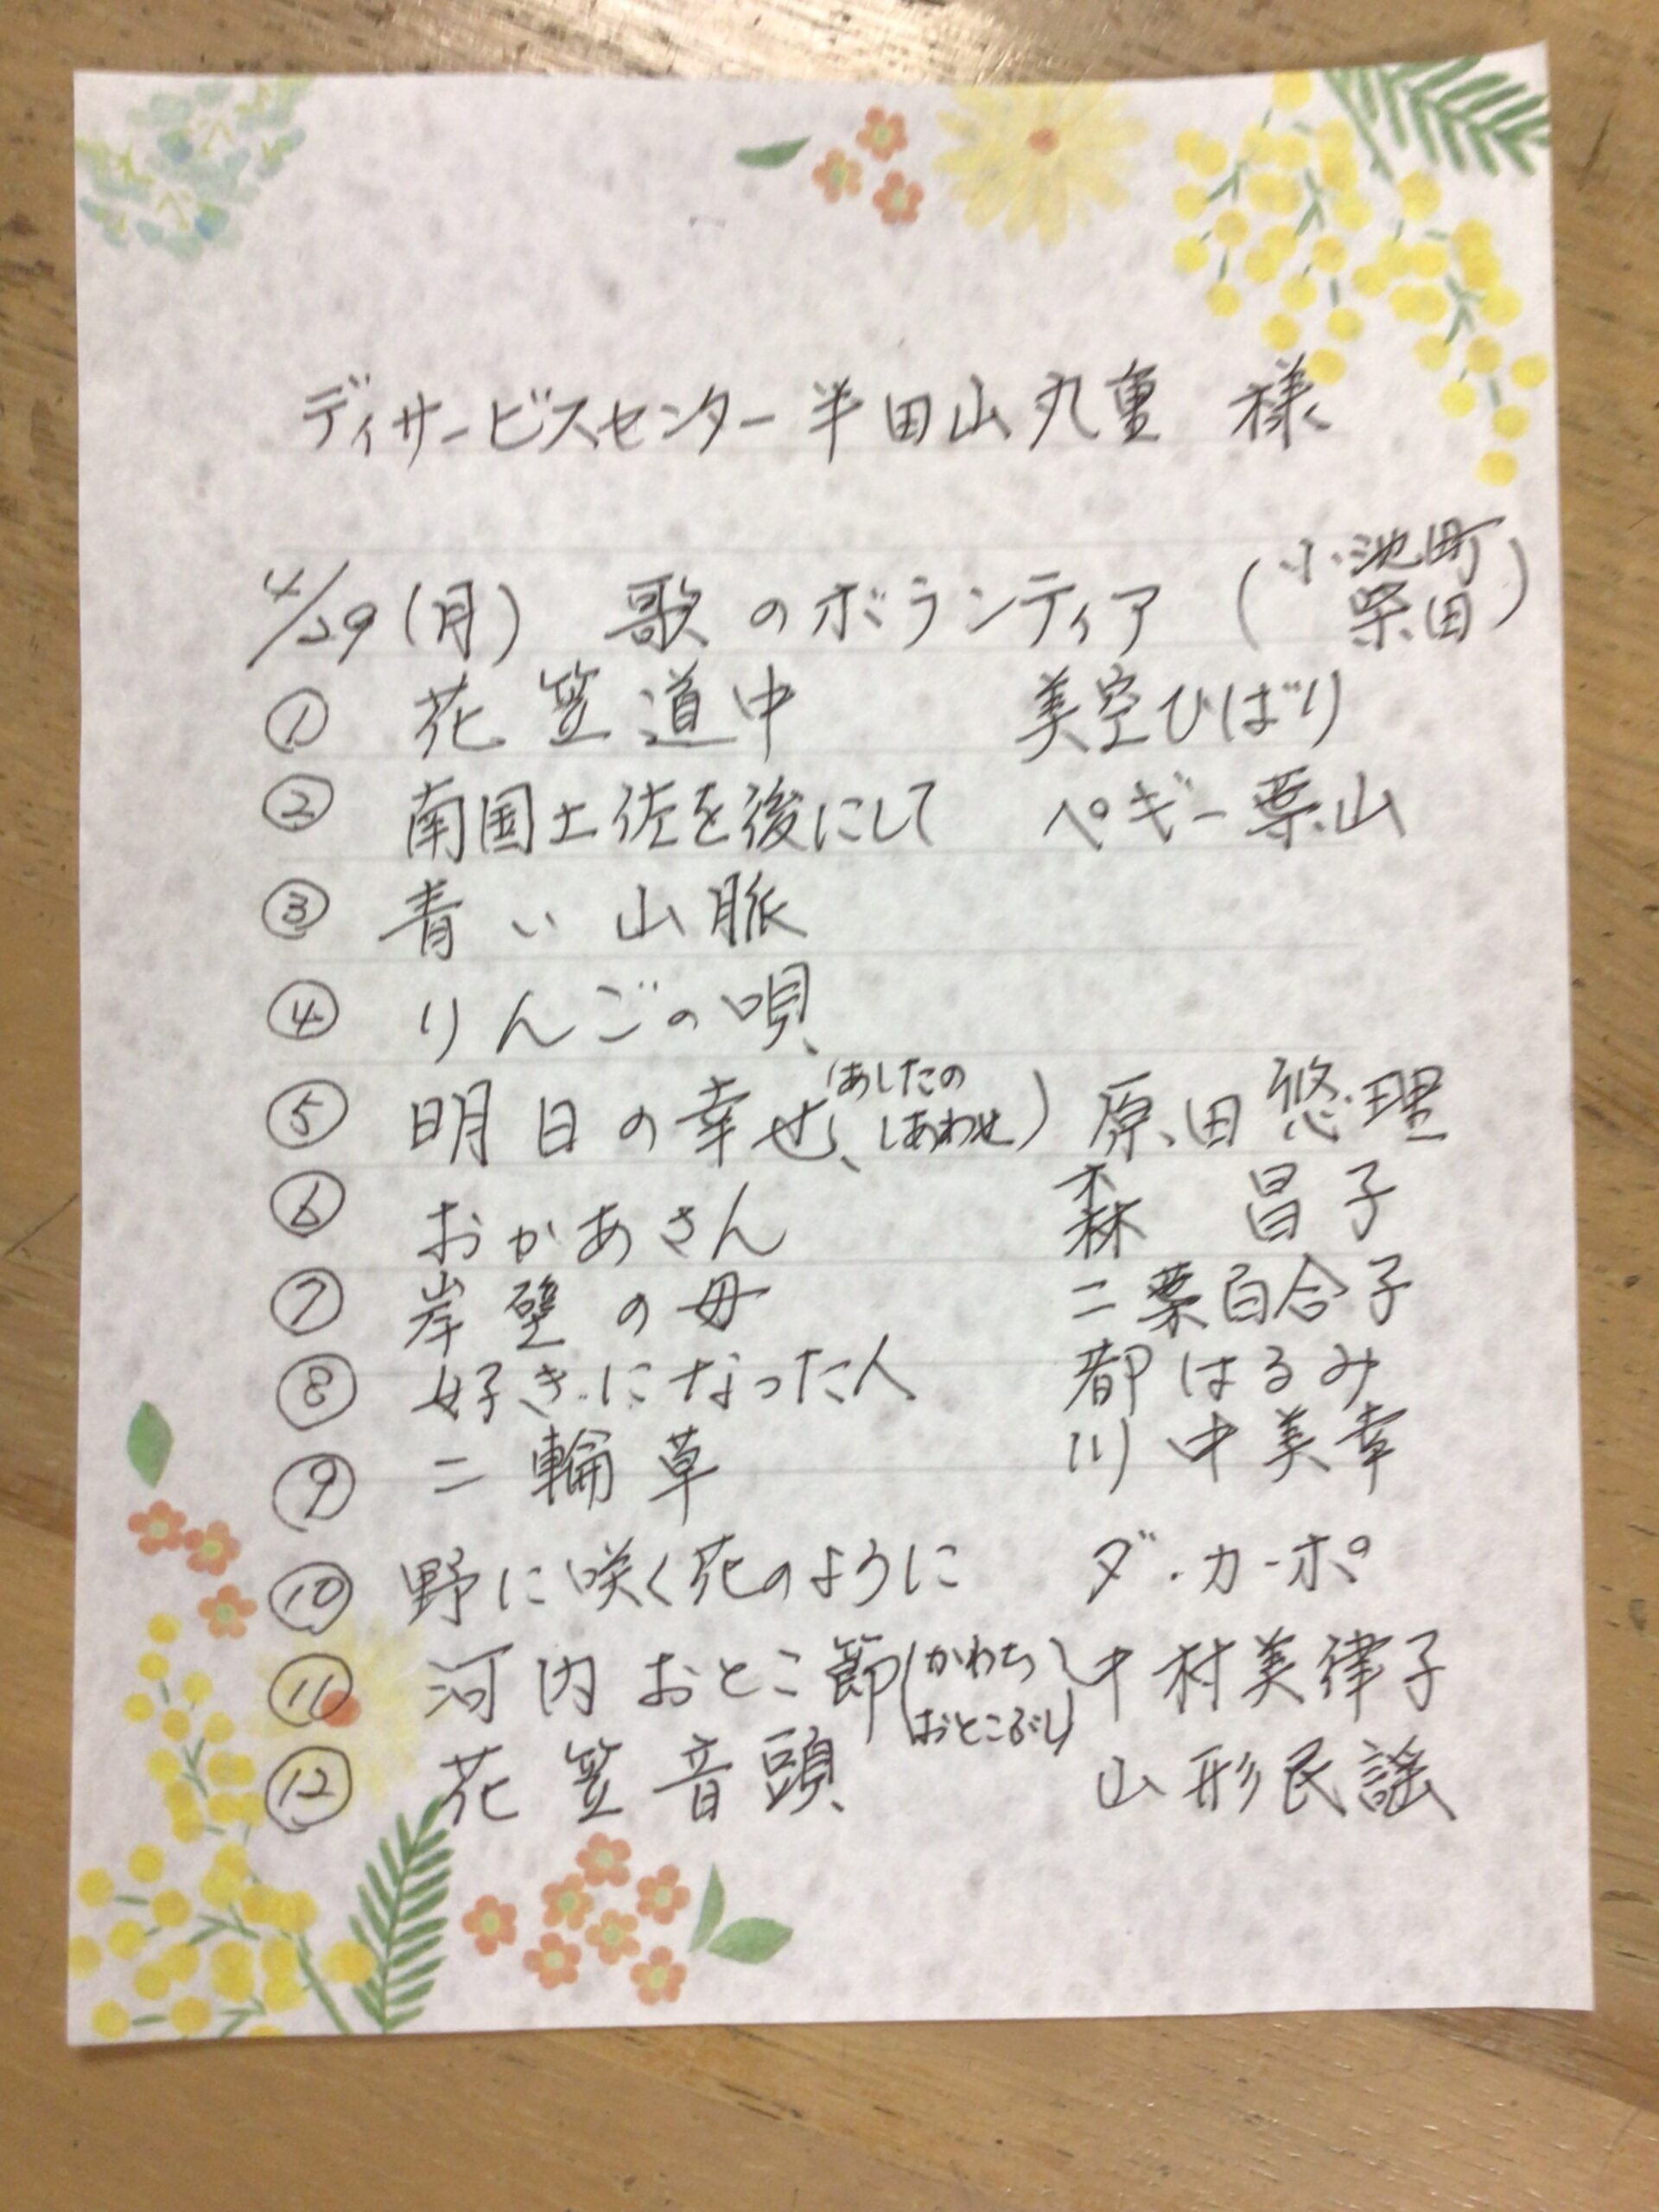 ディサービスセンター半田山丸重 様
4/29(月) 歌のボランティア (小池町
柴田)
① 花笠道中 美空ひばり
② 南国土佐を後にして ペギー葉山
③ 青い山脈
④ りんごの唄
⑤ 明日の幸せ(あしたのしあわせ) 原田悠理
⑥ おかあさん 森 昌子
⑦ 岸壁の母 二葉百合子
⑧ 好きになった人 都はるみ
⑨ 二輪草 川中美幸
⑩ 野に咲く花のように ダ・カーポ
⑪ 河内おとこ節(かわちおとこぶし) 中村美律子
⑫ 花笠音頭 山形民謡